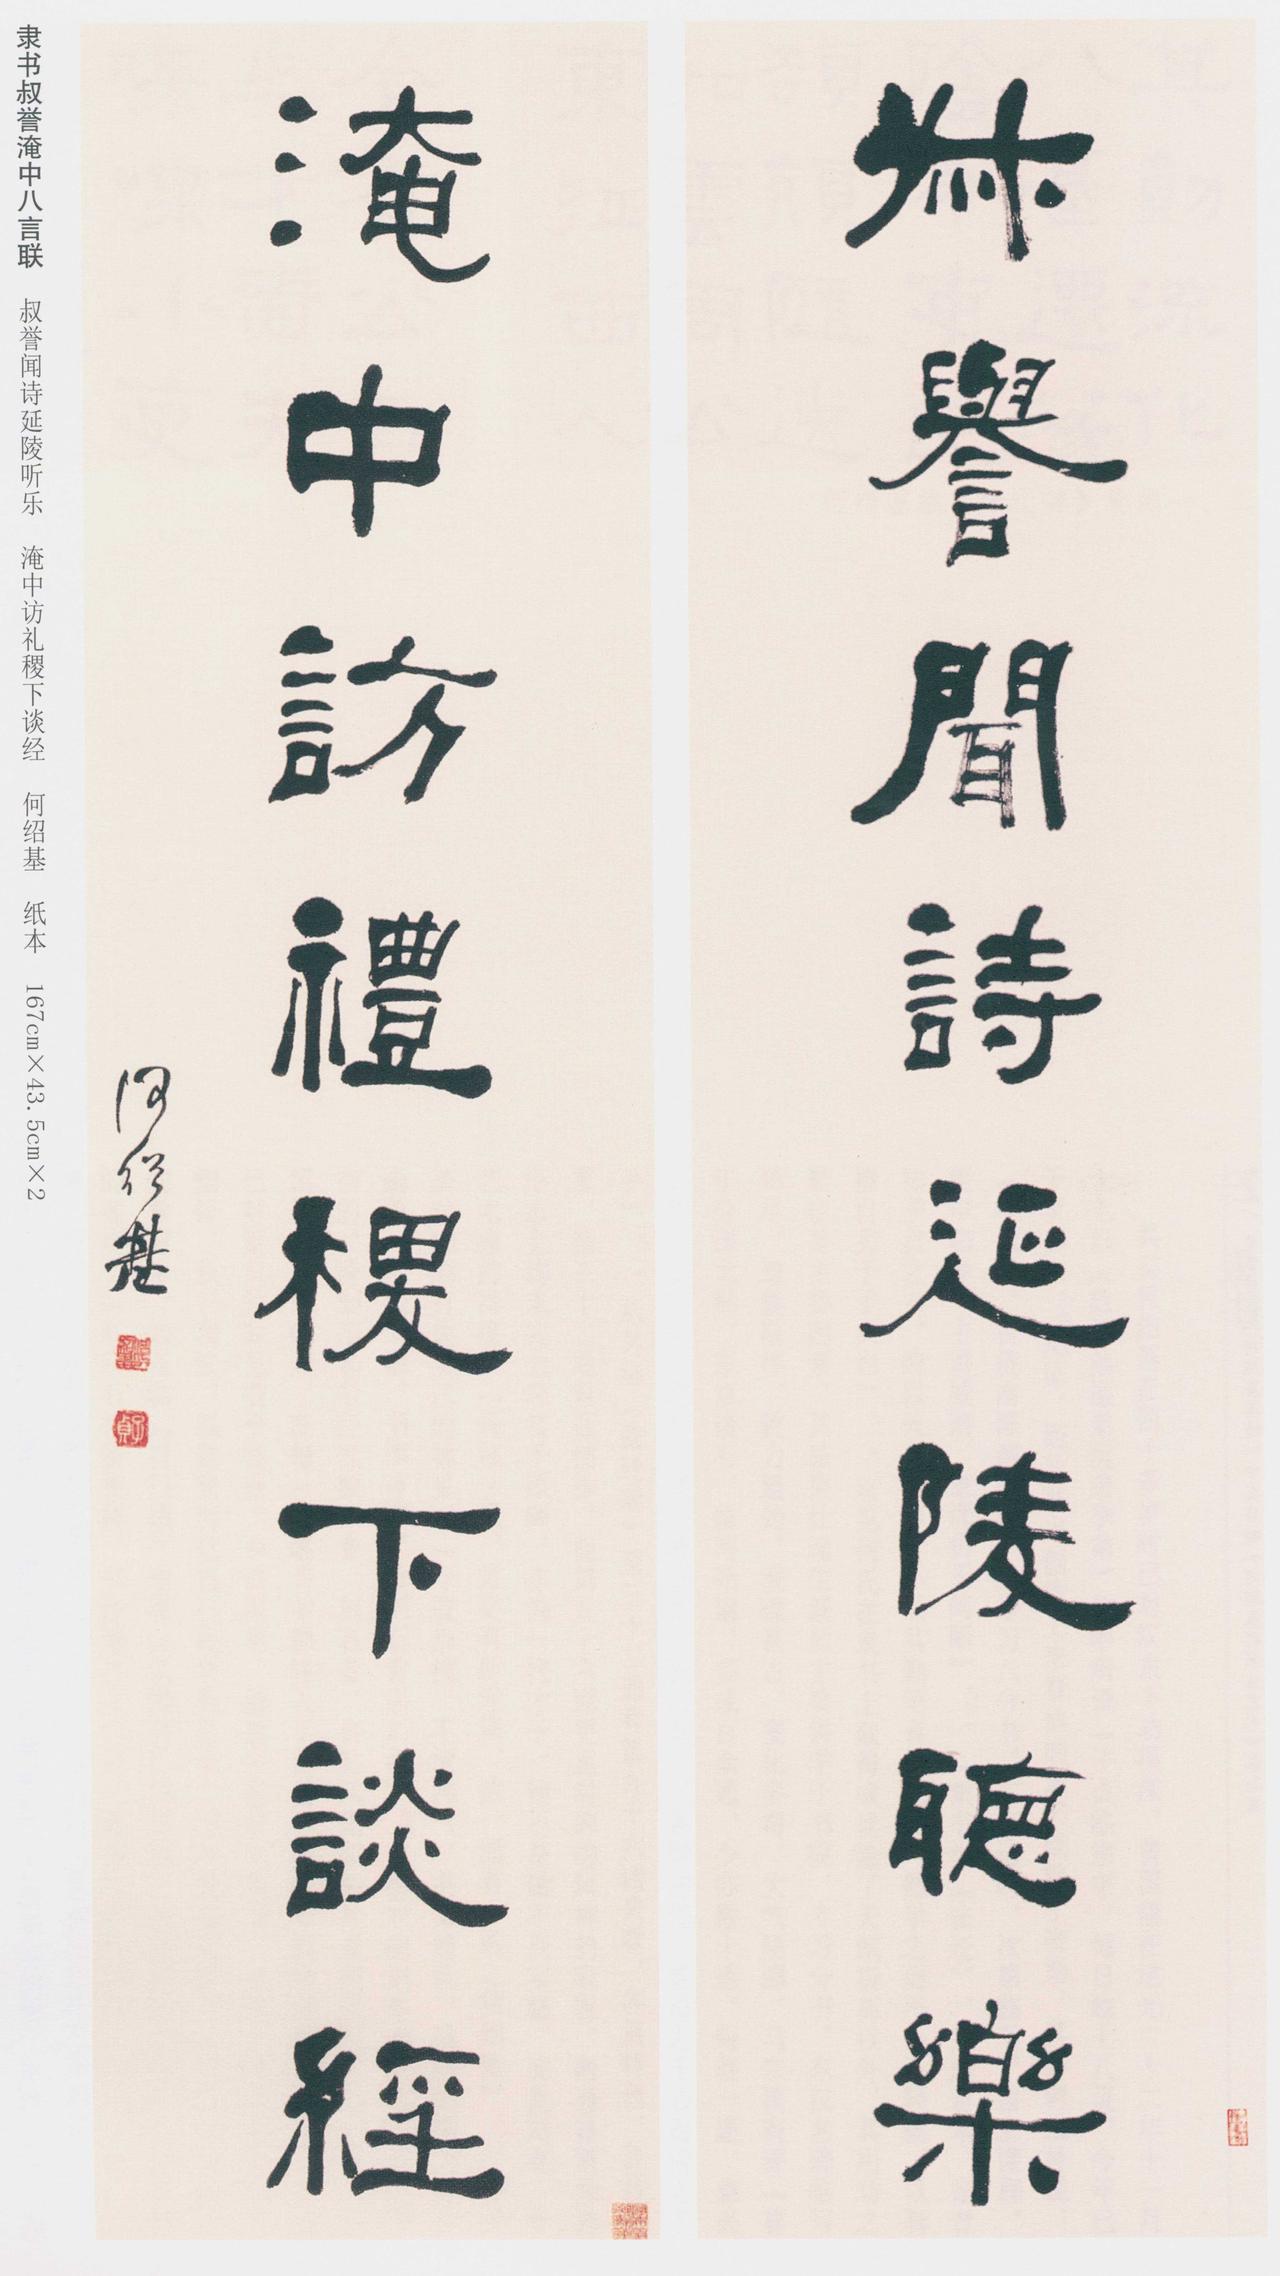 叔譽聞詩延陵聽樂
淹中訪禮稷下談經
何紹基
子貞
隶书叔誉淹中八言联 叔誉闻诗延陵听乐 淹中访礼稷下谈经 何绍基 纸本 167cm×43.5cm×2